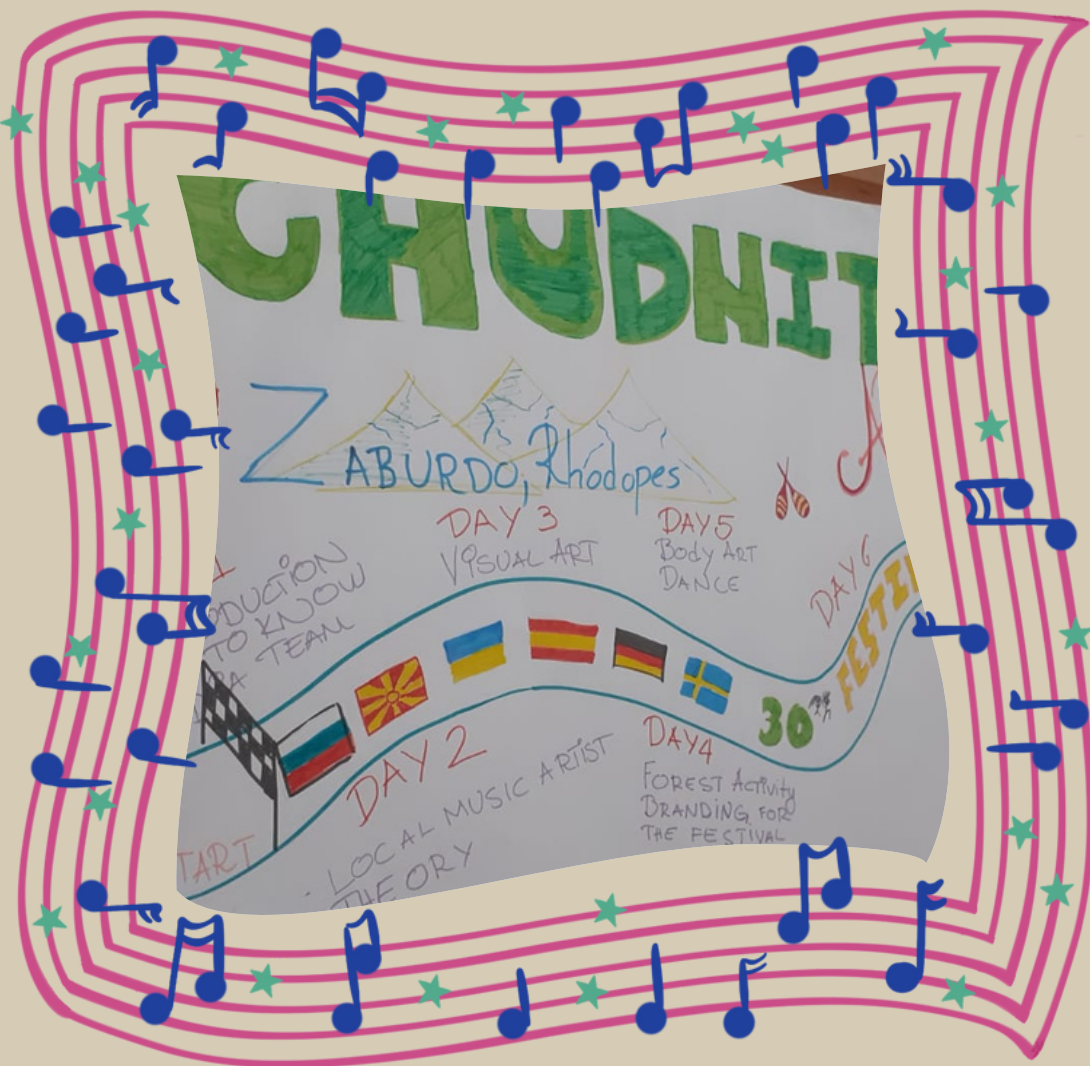 CHUDNIT
ZABURDO, Rhodopes
DAY 3
VISUAL ART
DAY 5
Body ART
DANCE
DAY 6
FESTI
TO KNOW
TEAM
30TH
DAY 2
- LOCAL MUSIC ARTIST
THEORY
DAY4
FOREST Activity
BRANDING FOR
THE FESTIVAL
TART